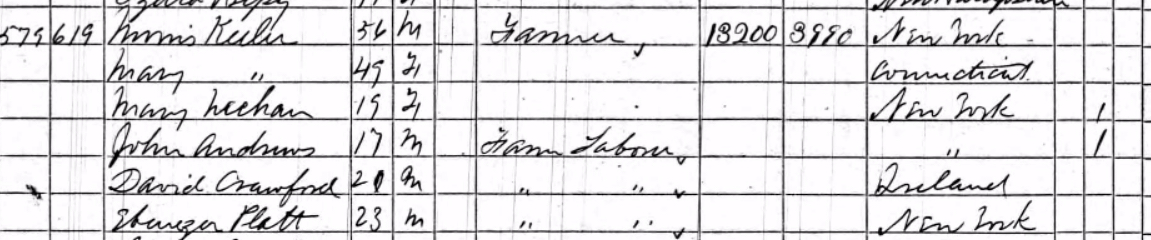 579 619 Morris Keeler 56 M Farmer 13200 3990 New York
Mary " 49 F Connecticut
Mary Meehan 19 F New York 1
John Andrews 17 M Farm Laborer " 1
David Crawford 21 M " " Ireland
Ebenezer Platt 23 M " " New York